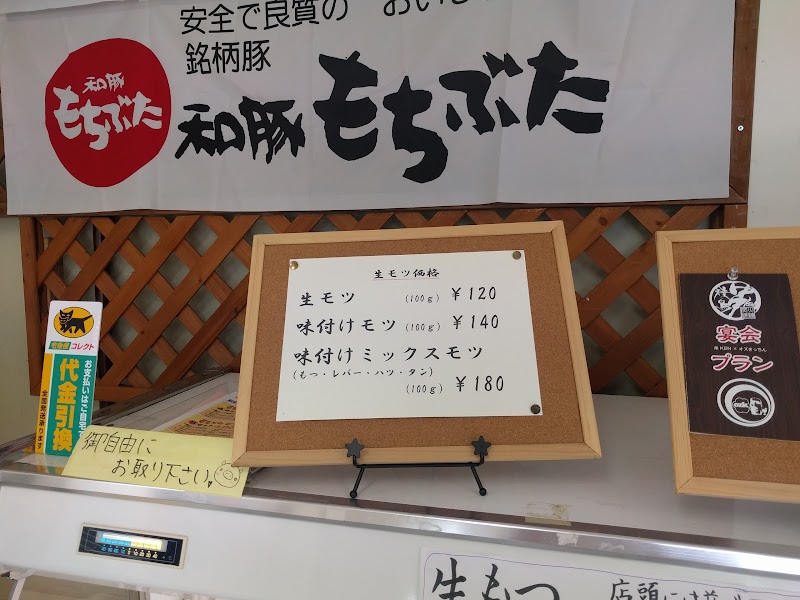 安全で良質の おいし
銘柄豚
和豚
もちぶた
和豚もちぶた
生モツ価格
生モツ (100g) ¥120
味付けモツ (100g) ¥140
味付けミックスモツ
(もつ・レバー・ハツ・タン)
(100g) ¥180
宅急便コレクト
代金引換
お支払いはご自宅で
全国発送承ります
御自由に
お取り下さい
宴会
プラン
生もつ
店頭には